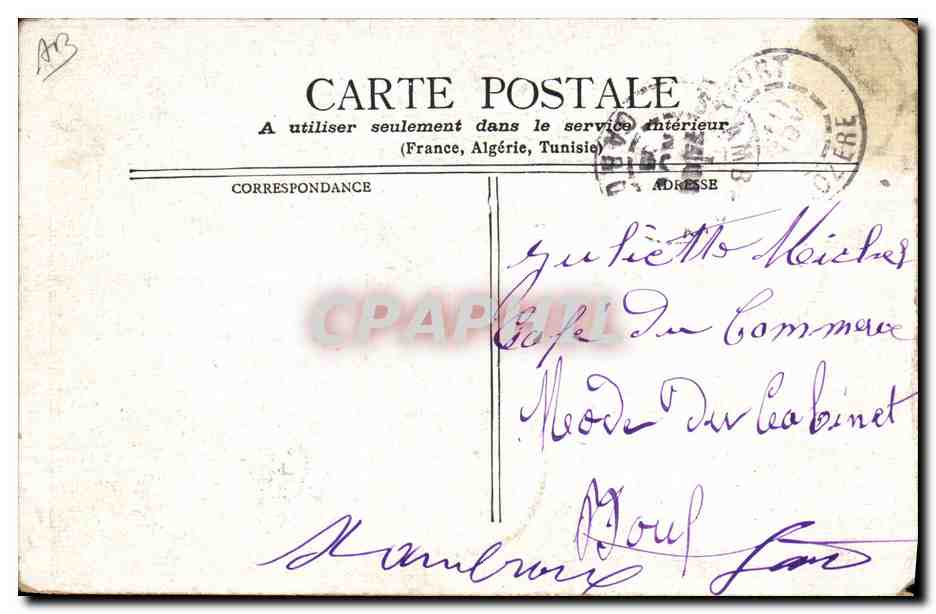 AB
CARTE POSTALE
A utiliser seulement dans le service intérieur
(France, Algérie, Tunisie)
CORRESPONDANCE
ADRESSE
Juliette Michel
Café du Commerce
Mode du Cabinet
St Ambroix Gard
CPAPHIL
GARD
OZERE